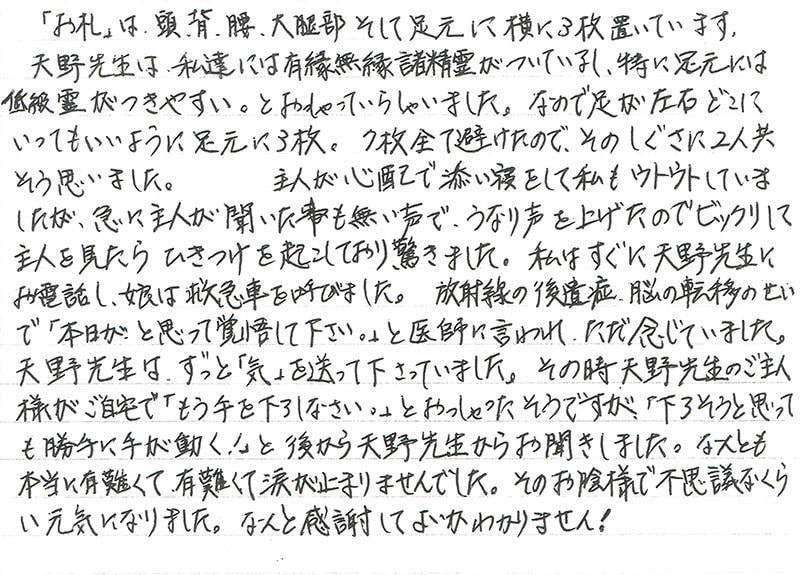 「お札」は、頭、背、腰、大腿部そして足元に横に3枚置いています。
天野先生は、私達には有縁無縁諸精霊がついているし、特に足元には
低級霊がつきやすい。とおしゃっていらしゃいました。なので足が左右どこに
いってもいいように足元に3枚。7枚全て避けたので、そのしぐさに2人共
そう思いました。 主人が心配で添い寝をして私もウトウトしていま
したが、急に主人が聞いた事も無い声で、うなり声を上げたのでビックリして
主人を見たらひきつけを起こしており驚きました。私はすぐに天野先生に
お電話し、娘は救急車を呼びました。放射線の後遺症、脳の転移のせい
で「本日が、と思って覚悟して下さい。」と医師に言われ、ただ念じていました。
天野先生は、ずっと「気」を送って下さっていました。その時天野先生のご主人
様がご自宅で「もう手を下ろしなさい。」とおっしゃったそうですが、「下ろそうと思って
も勝手に手が動く!」と後から天野先生からお聞きしました。なんとも
本当に有難くて、有難くて涙が止まりませんでした。そのお陰様で不思議なくら
い元気になりました。なんと感謝してよいかわかりません!